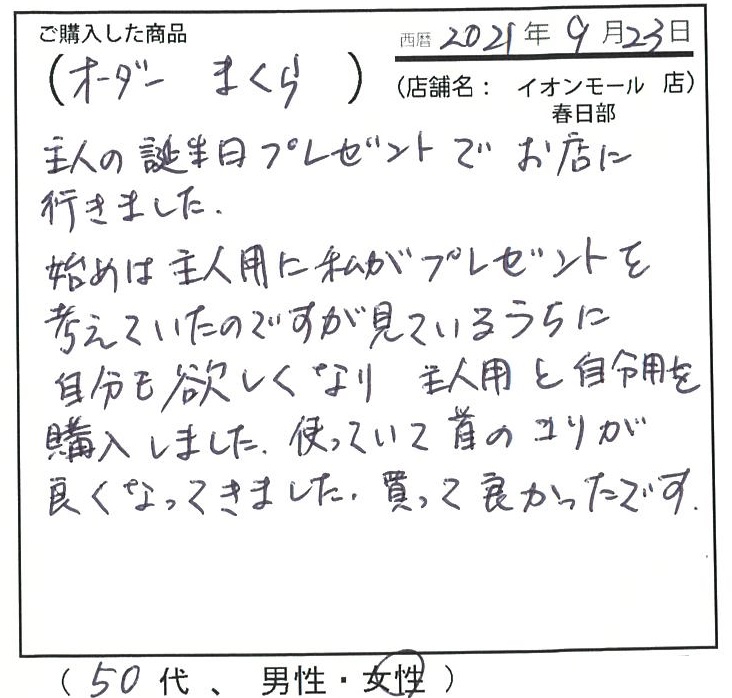 ご購入した商品
西暦 2021年 9月23日
(オーダー まくら )
(店舗名： イオンモール 店)
春日部
主人の誕生日プレゼントで お店に
行きました.
始めは主人用に私がプレゼントを
考えていたのですが見ているうちに
自分も欲しくなり 主人用と自分用を
購入しました. 使っていて首のコリが
良くなってきました. 買って良かったです.
( 50代 、 男性・女性 )